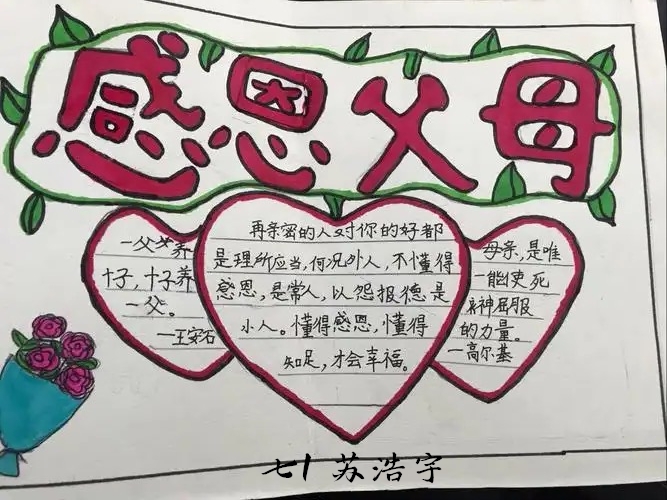 感恩父母
一父共养
十子，十子养
一父。
—王安石
再亲密的人对你的好都
是理所应当，何况外人，不懂得
感恩，是常人，以怨报德是
小人。懂得感恩，懂得
知足，才会幸福。
母亲，是唯
一能使死
神屈服
的力量。
—高尔基
七1 苏浩宇